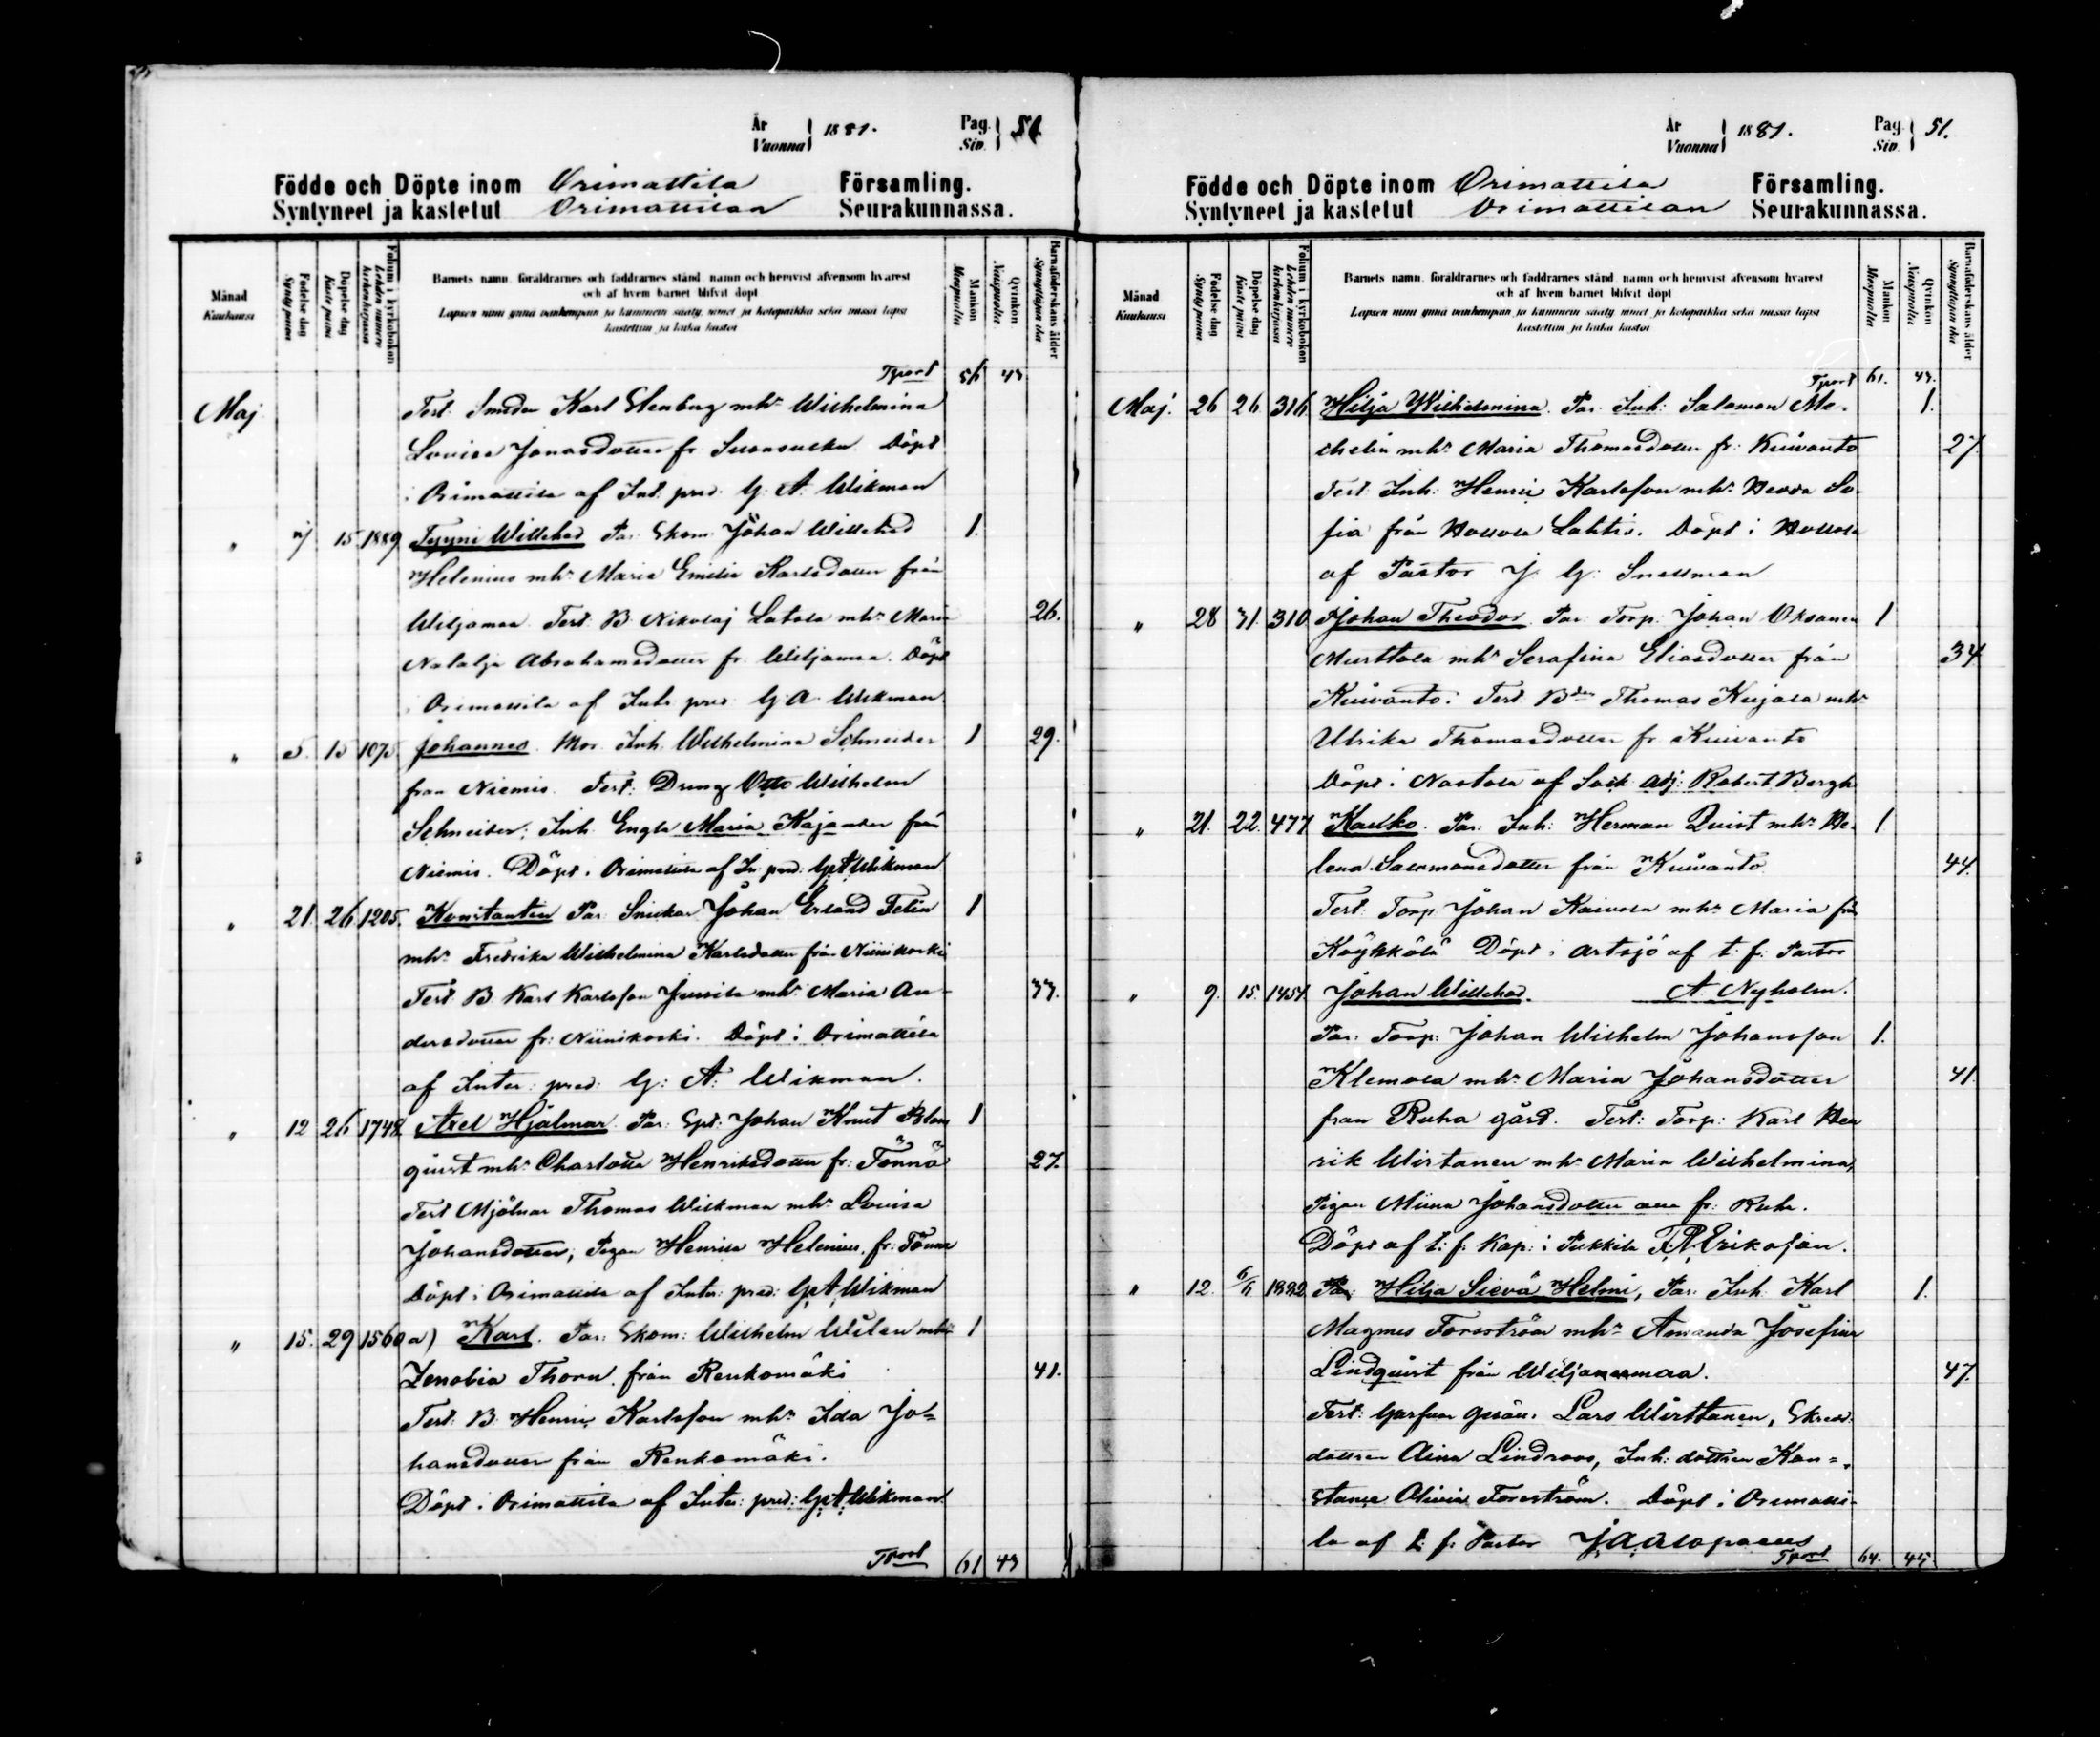 År
Vuonna } 1881. Pag. Siv. }
Födde och Döpte inom Orimattila Församling.
Syntyneet ja kastetut Orimattilan Seurakunnassa.
Månad
Kuukausi
Födelse dag
Synty päivä
Döpelse dag
Kaste päivä
Folium i kyrkoboken
Lehden numero kirkonkirjassa
Barnets namn, föräldrarnes och faddrarnes stånd, namn och hemvist äfvensom hvarest
och af hvem barnet blifvit döpt
Lapsen nimi ynnä vanhempain ja kummein sääty, nimet ja kotopaikka sekä missä lapsi
kastettiin ja kuka kastoi
Mankön
Miespuolia
Qvinkön
Naispuolia
Barnaföderskans ålder
Synnyttäjän ikä
Tport 56 43
Maj Test: Smeden Karl Elenberg mhr Wilhelmina
Lovisa Jonasdotter fr. Suonsuekn Döpt
i Orimattila af Int: pred. G. A. Wikman
" 15 1889 Tyyni Willehad Par: Ekom: Johan Willehad 1.
Helenius mhr Maria Emilia Karlsdotter från
Wiljamaa Test: B. Nikolaj Latola mhr Maria 26.
Natalja Abrahamsdotter fr. Wiljamaa. Döpt
i Orimattila af Int: pred G. A. Wikman
" 5. 15 1075. Johannes. Mor. Inh. Wilhelmina Schneider 1 29.
från Niemis. Test: Dreng Otto Wilhelm
Schneider; Inh. Engla Maria Kajander från
Niemis. Döpt i Orimattila af In. pred: G. A. Wikman
" 21. 26 1205. Konstantin Par: Snickar Johan Erland Felin 1
mhr Fredrika Wilhelmina Karlsdotter från Niinikoski
Test: B. Karl Karlsson Jussila mhr Maria An- 33.
dersdotter fr: Niinikoski. Döpt i Orimattila
af Inter: pred: G: A: Wikman.
" 12 26 1748 Axel Hjalmar. Par: Spt: Johan Knut Blom 1
quist mhr Charlotta Henriksdotter fr: Tönnö 27.
Test Mjölnar Thomas Wickman mhr Lovisa
Johansdotter; Pigan Henrica Helenius, fr: Tönnö
Döpt i Orimattila af Inter: pred: G. A. Wikman
" 15. 29 1560 a) Karl. Par: Ekom: Wilhelm Wilen mhr 1
Zenobia Thorn. från Renkomäki 41.
Test: B. Henric Karlsson mhr Ida Jo=
hansdotter från Renkomäki.
Döpt i Orimattila af Inter: pred: G. A. Wikman
Tport 61 43
År
Vuonna } 1881. Pag. Siv. } 51.
Födde och Döpte inom Orimattila Församling.
Syntyneet ja kastetut Orimattilan Seurakunnassa.
Månad
Kuukausi
Födelse dag
Synty päivä
Döpelse dag
Kaste päivä
Folium i kyrkoboken
Lehden numero kirkonkirjassa
Barnets namn, föräldrarnes och faddrarnes stånd, namn och hemvist äfvensom hvarest
och af hvem barnet blifvit döpt
Lapsen nimi ynnä vanhempain ja kummein sääty, nimet ja kotopaikka sekä missä lapsi
kastettiin ja kuka kastoi
Mankön
Miespuolia
Qvinkön
Naispuolia
Barnaföderskans ålder
Synnyttäjän ikä
Tport 61. 43.
Maj. 26 26 316 Hilja Wilhelmina. Par: Inh: Salomon Me- 1.
chelin mhr Maria Thomasdotter fr: Kuivanto 27.
Test: Inh: Henric Karlsson mhr Hedda So-
fia från Hollola Lahtis. Döpt i Hollola
af Pastor J. G. Snellman
" 28 31. 310 Johan Theodor. Par: Torp: Johan Oksanen 1
Murttola mhr Serafina Eliasdotter från 34
Kuivanto. Test: Bden Thomas Kujala mhr
Ulrika Thomasdotter fr. Kuivanto
Döpt i Nastola af Sock. adj: Robert Bergh
" 21. 22. 477 Kaarlo. Par: Inh: Herman Quist mhr He- 1
lena Salomonsdotter från Kuivanto 44.
Test: Torp. Johan Kaivola mhr Maria från
Köylkölä Döpt i Artsjö af t. f. Pastor
" 9. 15. 1454. Johan Willehad. A. Nyholm.
Par: Torp: Johan Wilhelm Johansson 1.
Klemola mhr Maria Johansdotter 41.
från Ruha gård. Test: Torp: Karl Hen
rik Wirtanen mhr Maria Wilhelmina,
Pigan Miina Johansdotter alla fr. Ruha.
Döpt af t: f: Kap: i Pukkila F. R. Eriksson.
" 12. 6/6 1882 Par: Hilja Sievä Helmi, Par: Inh. Karl 1.
Magnus Forsström mhr Amanda Josefina
Lindquist från Wiljanenmaa. 47.
Test: Garfvar Lars Wirttanen, Skredd:
dottren Aina Lindroos, Inh: dottren Kon=
stance Olivia Forsström. Döpt i Orimatti-
la af t: f: Pastor
Tport 64. 45.